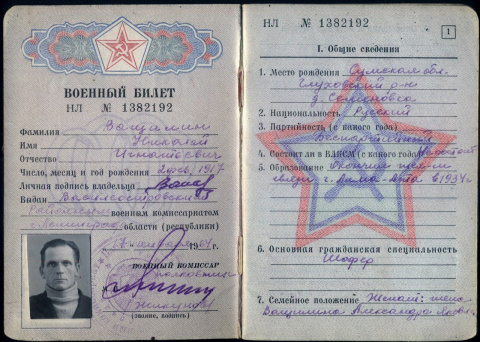 ВОЕННЫЙ БИЛЕТ
НЛ № 1382192
Фамилия
Имя Николай
Отчество Игнатьевич
Число, месяц и год рождения 1917
Личная подпись владельца
Выдан Василеостровский
военным комиссариатом
Ленинграда области (республики)
17 января 1964 г.
ВОЕННЫЙ КОМИССАР
полковник
(звание, подпись)
НЛ № 1382192
1
I. Общие сведения
1. Место рождения Сумская обл.
Глуховский р-н
д.
2. Национальность Русский
3. Партийность (с какого года)
Беспартийный
4. Состоит ли в ВЛКСМ (с какого года) Не состоит
5. Образование
связи г. Алма-Ата в 1934 г.
6. Основная гражданская специальность
Шофер
7. Семейное положение Женат: жена
Александра